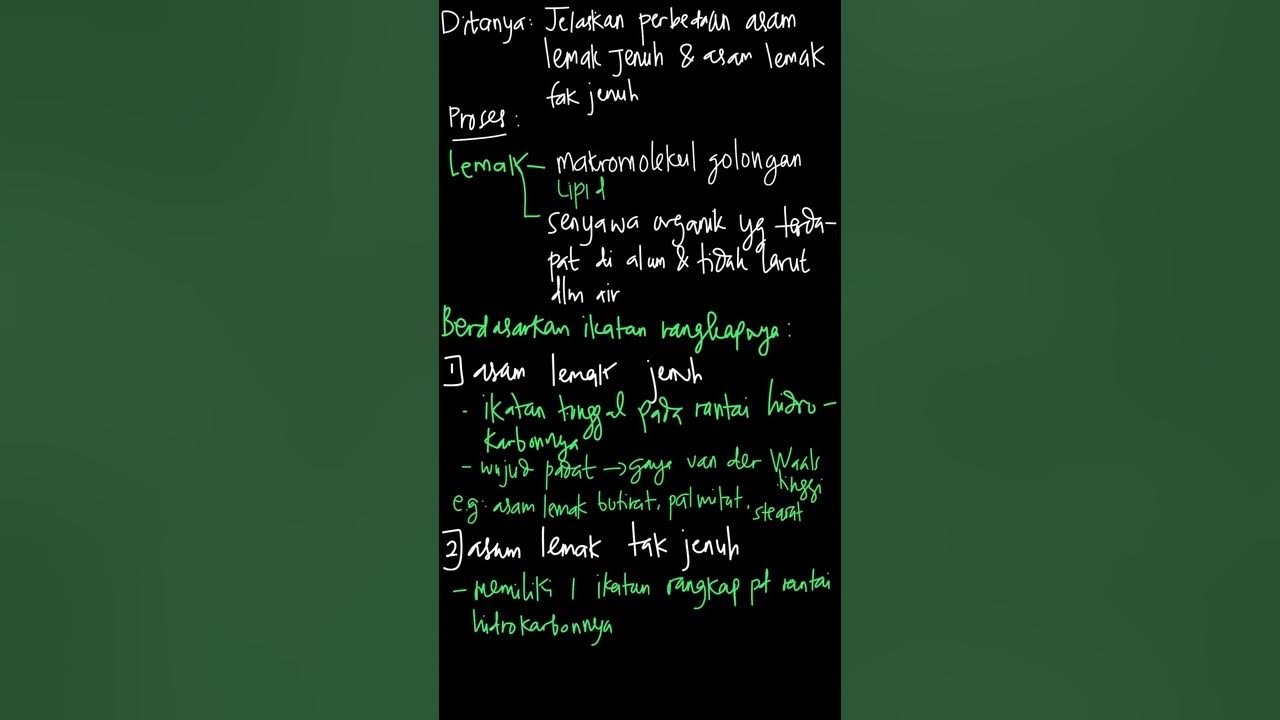 Ditanya: Jelaskan perbedaan asam
lemak Jenuh & asam lemak
tak jenuh
Proses:
Lemak - makromolekul golongan
Lipid
senyawa organik yg terda-
pat di alam & tidak larut
dlm air
Berdasarkan ikatan rangkapnya:
1] asam lemak jenuh
- ikatan tunggal pada rantai hidro-
karbonnya
- wujud padat → gaya van der Waals
tinggi
e.g: asam lemak butirat, palmitat,
stearat
2] asam lemak tak jenuh
- memiliki 1 ikatan rangkap pd rantai
hidrokarbonnya